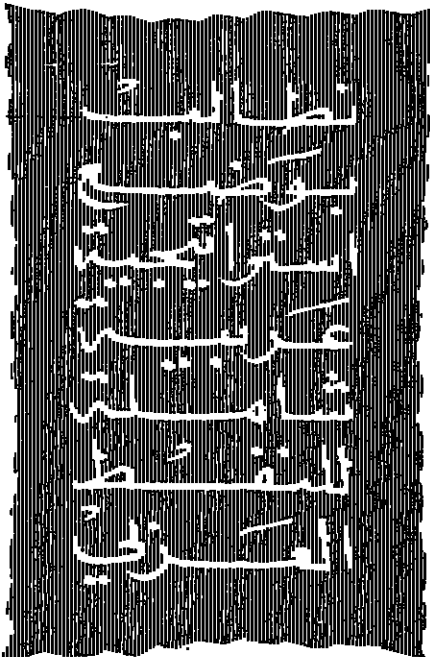 نطالبُ
بوَضع
استراتيجية
عَربية
شاملة
للنفُط
العَربيُ